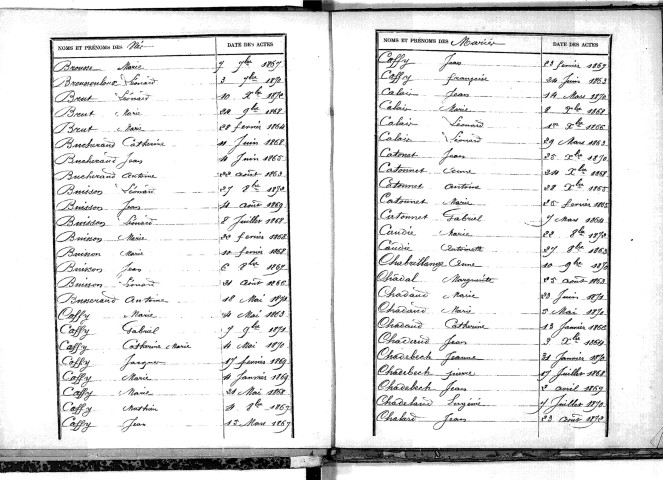 NOMS ET PRÉNOMS DES Nés DATE DES ACTES
Brousse Marie 7 9bre 1867
Léonard 3 9bre 1870
Brut Léonard 10 Xbre 1870
Brut Marie 24 9bre 1868
Brut Marie 28 fevrier 1864
Bucherand Catherine 11 Juin 1868
Bucherand Jean 4 Juin 1865
Bucherand Antoine 22 août 1863
Buisson Léonard 27 8bre 1870
Buisson Jean 4 août 1869
Buisson Léonard 8 Juillet 1868
Buisson Marie 22 fevrier 1868
Buisson Marie 11 fevrier 1868
Buisson Jean 6 8bre 1867
Buisson Léonard 31 août 1866
Antoine 18 Mai 1871
Caffy Marie 4 Mai 1863
Caffy Gabriel 9 9bre 1871
Caffy Catherine Marie 4 Mai 1870
Caffy Jacques 17 fevrier 1869
Caffy Marie 4 Janvier 1869
Caffy Marie 21 Mai 1868
Caffy 4 8bre 1867
Caffy Jean 12 Mars 1867
NOMS ET PRÉNOMS DES Mariés DATE DES ACTES
Caffy Jean 23 fevrier 1867
Caffy françoise 24 Juin 1863
Calais Jean 14 Mars 1870
Calais Marie 8 Xbre 1868
Calais Léonard 1er Xbre 1866
Calais Léonard 29 Mars 1863
Catonet Jean 25 Xbre 1870
Catonnet Anne 24 Xbre 1868
Catonnet Antoine 28 Xbre 1865
Catonnet Marie 25 fevrier 1865
Catonnet Gabriel 7 Mars 1864
Caudie Marie 22 8bre 1870
Caudie Antoinette 27 8bre 1863
Anne 10 9bre 1870
Chadal Marguerite 25 août 1863
Chadaud Marie 23 Juin 1871
Chadaud Marie 5 Mai 1870
Chadaud Catherine 13 Janvier 1866
Chadaud Jean 3 Xbre 1864
Chadebech Jeanne 31 Janvier 1870
Chadebech pierre 17 Juillet 1868
Chadebech Jean 2 avril 1867
Eugénie 7 Juillet 1870
Chalard Jean 23 août 1870